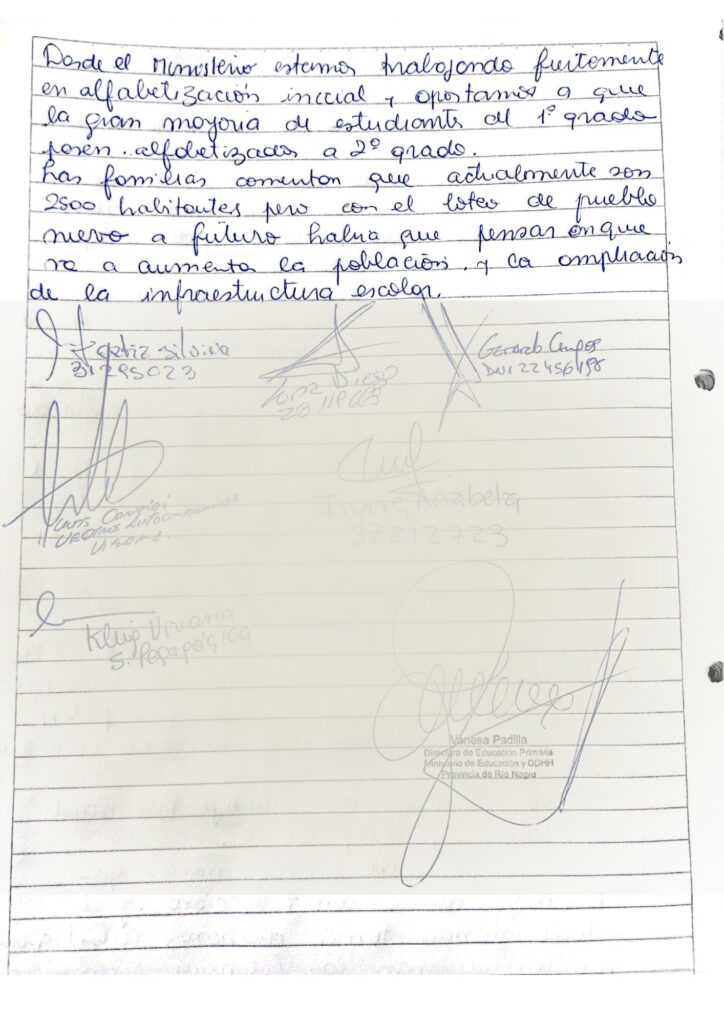 Desde el Ministerio estamos trabajando fuertemente
en alfabetización inicial y apostamos a que
la gran mayoria de estudiante del 1º grado
pasen alfabetizados a 2º grado.
Las familias comentan que actualmente son
2500 habitantes pero con el loteo de pueblo
nuevo a futuro habria que pensar en que
va a aumenta la población. y la ampliación
de la infraestructura escolar.
Silvina
31295023
Gerardo Campos
DNI 22456198
Anabela
37212723
Viviana
Vanesa Padilla
Directora de Educación Primaria
Ministerio de Educación y DDHH
Provincia de Río Negro